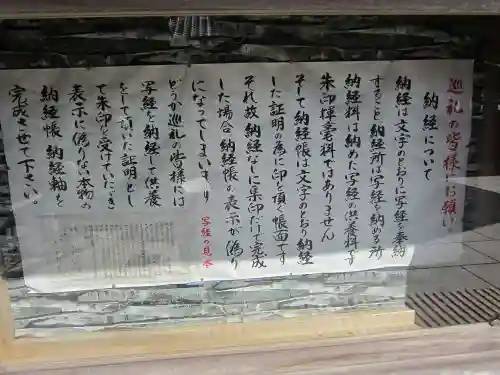 巡礼の皆様にお願い
納経について
納経は文字のとおりに写経を奉納
すること 納経所は写経を納める所
納経料は納めた写経の供養料です
朱印揮毫料ではありません
そして納経帳は文字のとおり納経
した証明の為に印を頂く帳面です
それ故納経なしに朱印だけで完成
した場合納経帳の表示が偽り
になってしまいます
写経の見本
どうか巡礼の皆様には
写経を納経して供養
をして頂いた証明とし
て朱印を受けていただき
表示に偽りない本物の
納経帳 納経軸を
完成させて下さい。